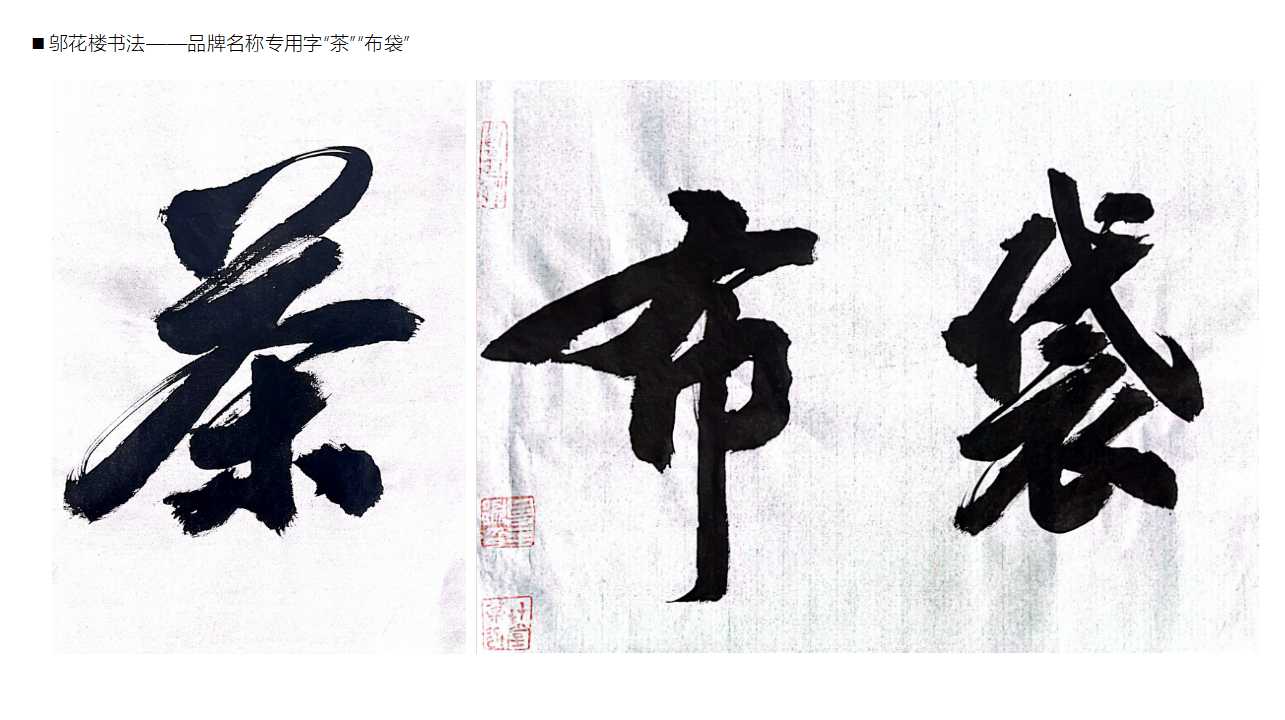 ■ 邬花楼书法——品牌名称专用字“茶”“布袋”
茶
布袋